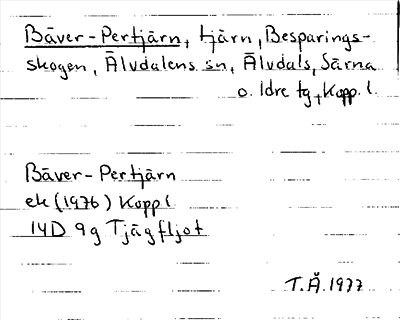 Bäver-Pertjärn, tjärn, Besparings-
skogen, Älvdalens sn, Älvdals, Särna
o. Idre tg, Kopp. l.
Bäver-Pertjärn
ek (1976) Kopp l
14D 9g Tjägfljot
T.Å.1977